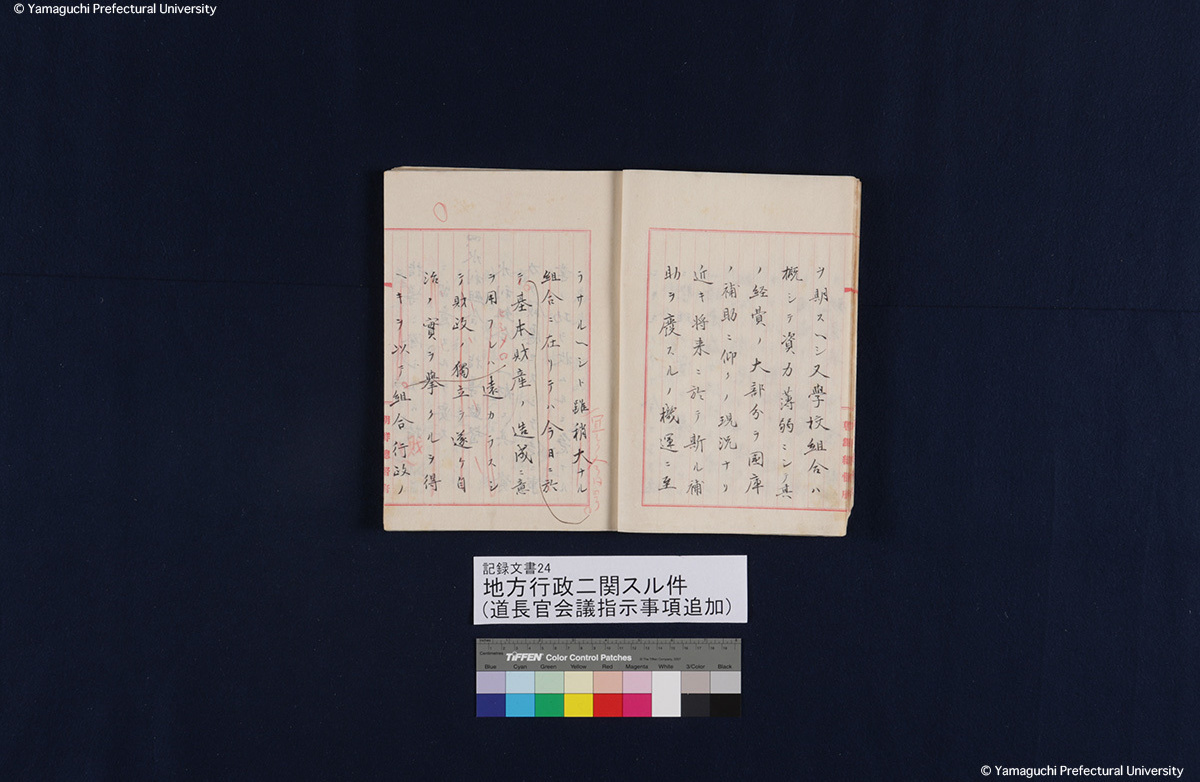 © Yamaguchi Prefectural University
ヲ期スヘシ又學校組合ハ
概シテ資力薄弱ニシテ其
ノ経費ノ大部分ヲ國庫
ノ補助ニ仰クノ現況ナリ
近キ将来ニ於テ斯ル補
助ヲ廢スルノ機運ニ至
ラサルヘシト雖稍大ナル
組合ニ在リテハ今日ニ於
テ基本財産ノ造成ニ意
ヲ用フレハ遠カラスシ
テ財政ノ獨立ヲ遂ケ自
治ノ實ヲ擧クルヲ得
ヘキヲ以テ組合行政ノ
記録文書24
地方行政二関スル件
(道長官会議指示事項追加)
Centimetres
TIFFEN Color Control Patches
Blue Cyan Green Yellow Red Magenta White 3/Color Black
© Yamaguchi Prefectural University